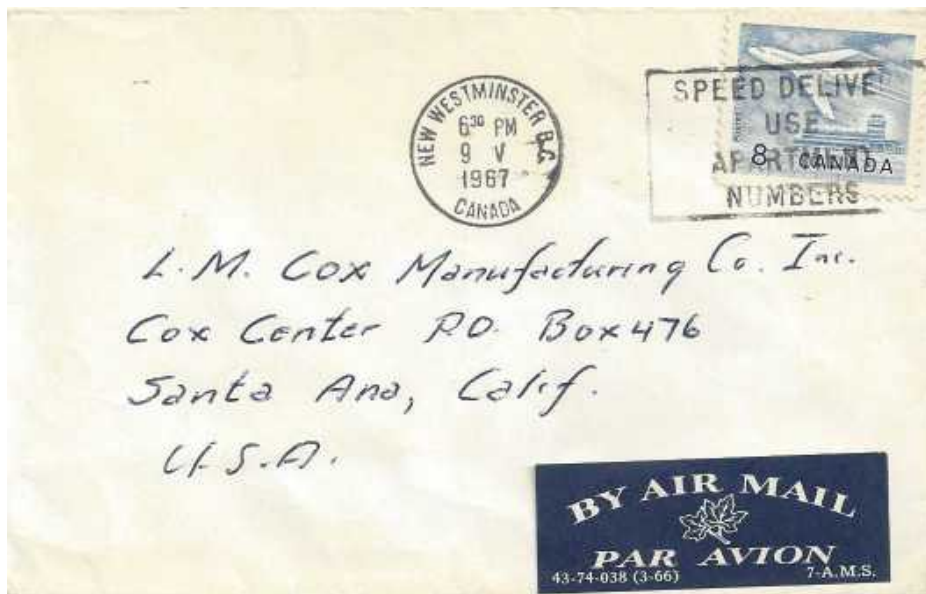 NEW WESTMINSTER B.C.
6³⁰ PM
9 V
1967
CANADA
SPEED DELIVE
USE
APARTMENT
NUMBERS
8 CANADA
L.M. Cox Manufacturing Co. Inc.
Cox Center P.O. Box 476
Santa Ana, Calif.
U.S.A.
BY AIR MAIL
PAR AVION
43-74-038 (3-66) 7-A.M.S.